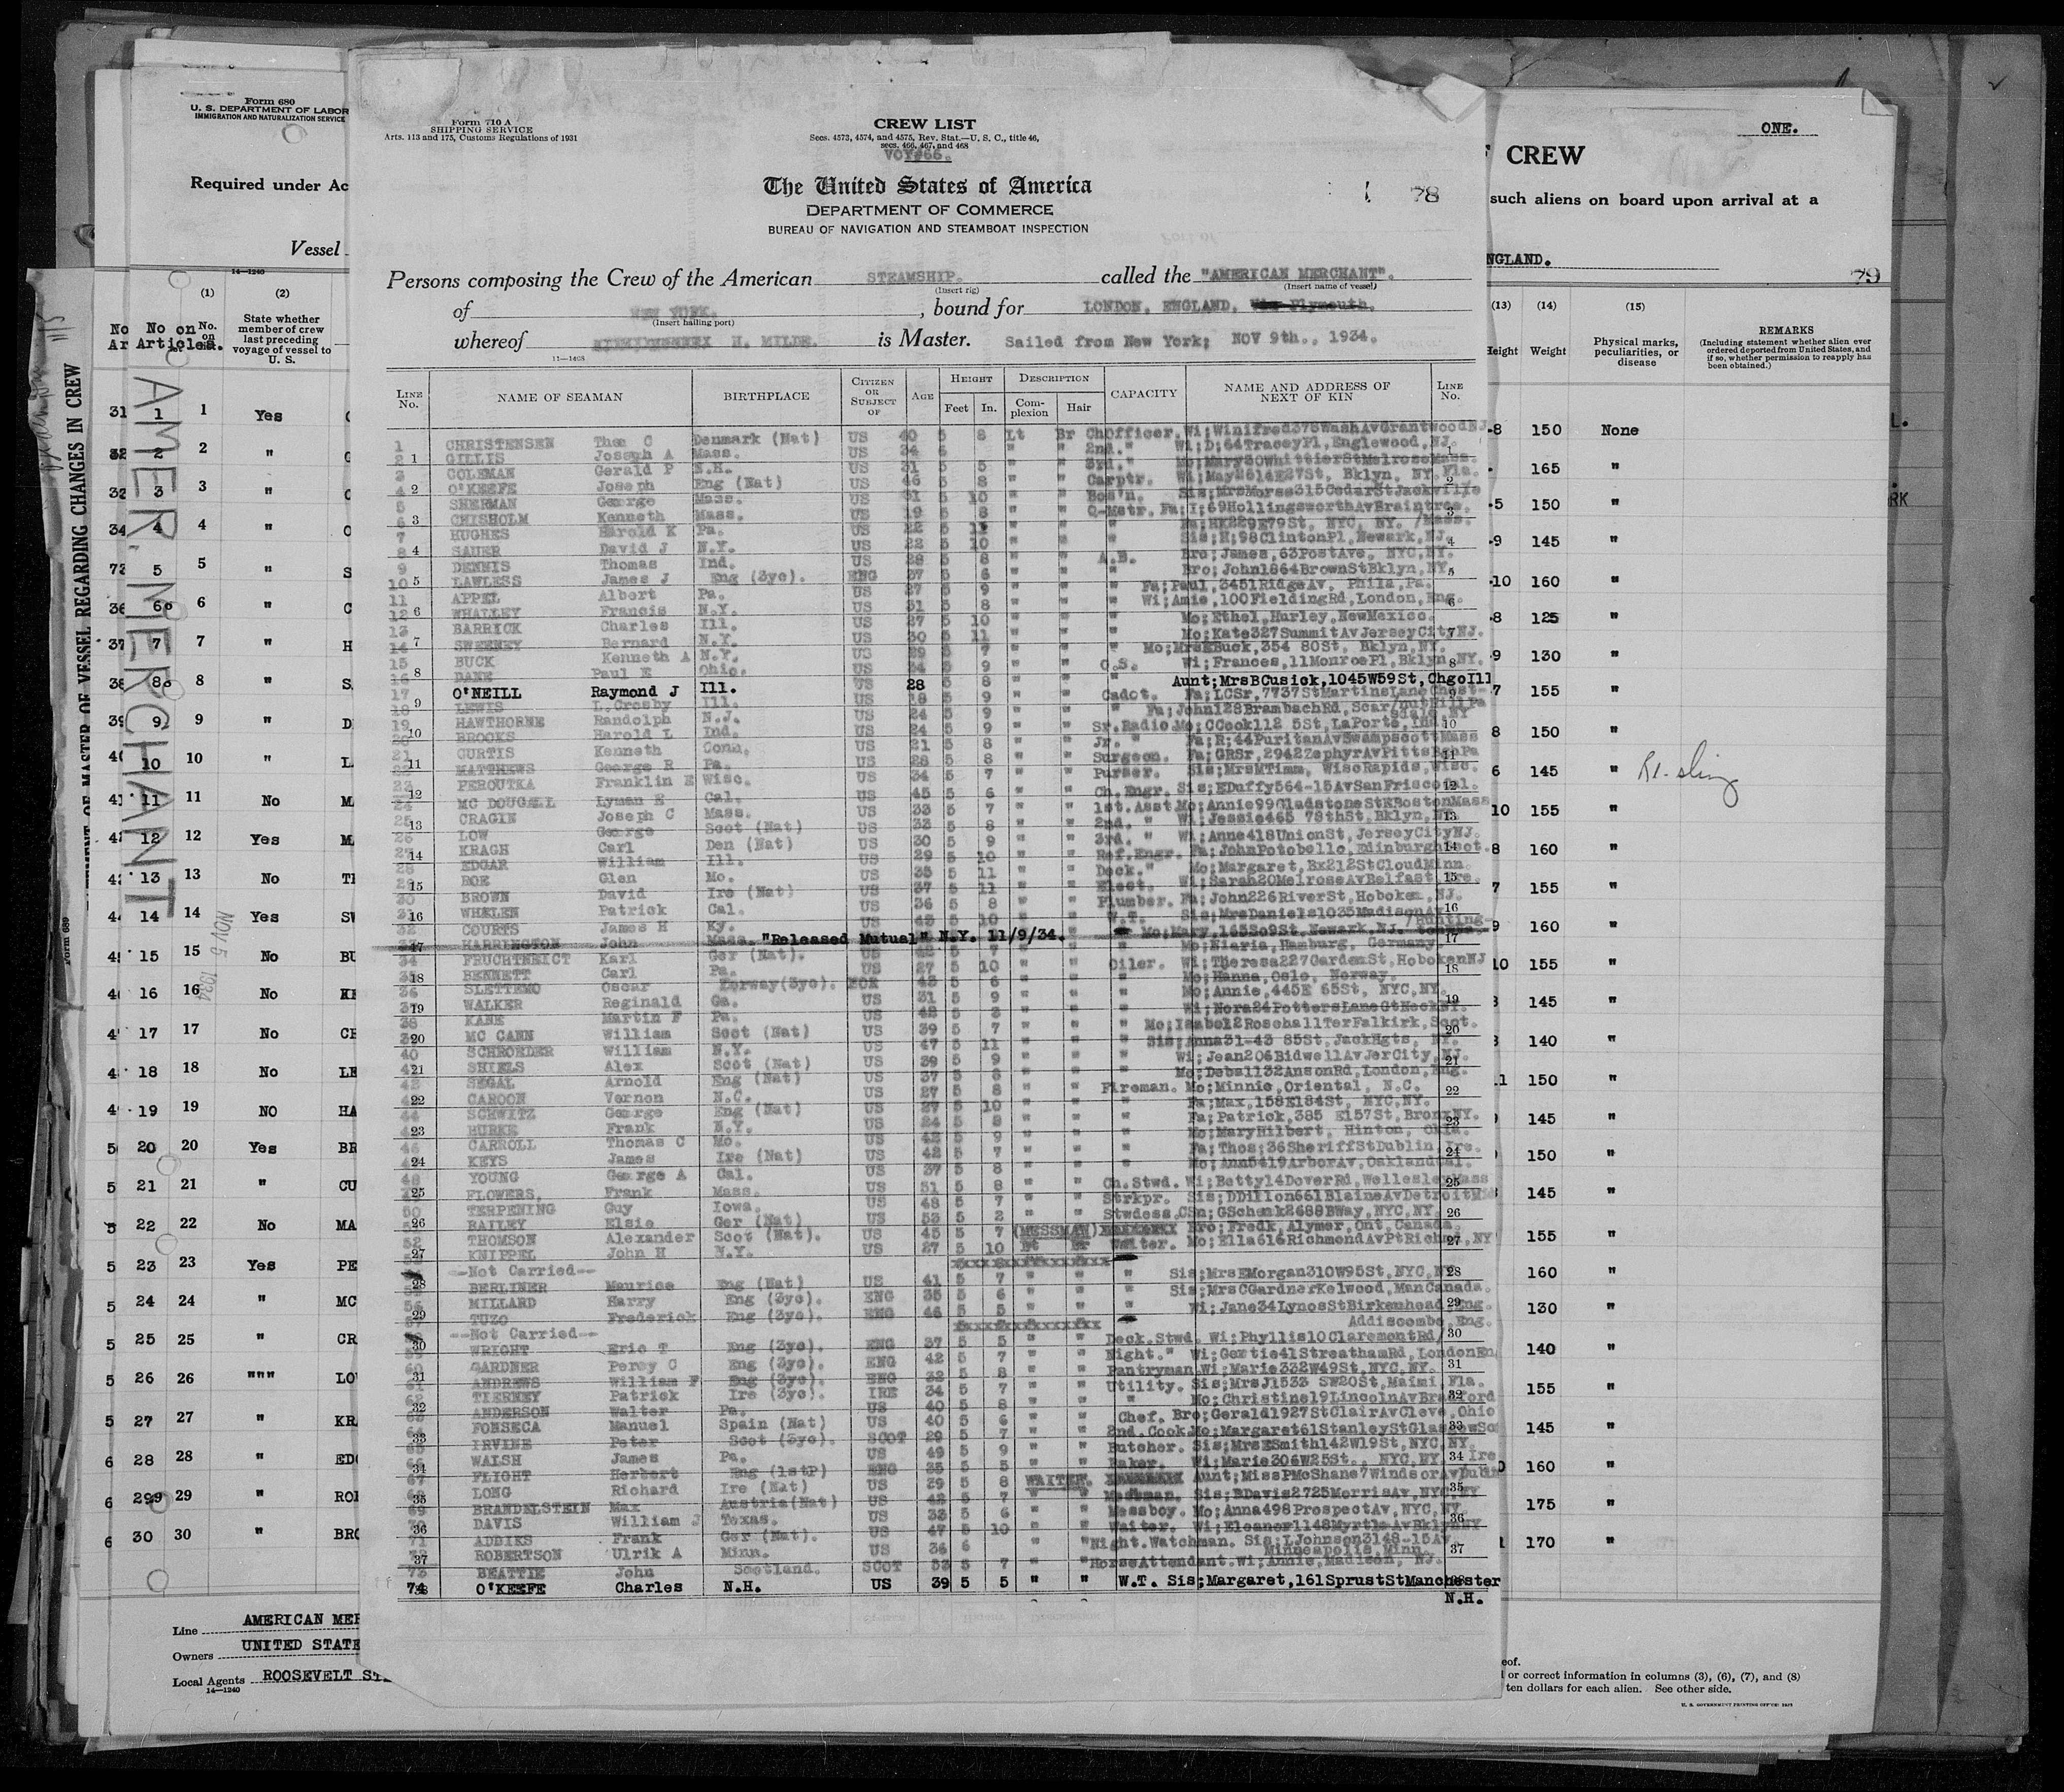 Form 680
U. S. DEPARTMENT OF LABOR
IMMIGRATION AND NATURALIZATION SERVICE
Required under Ac
Vessel
14—1240
(1)
(2)
No. on
State whether
member of crew
last preceding
voyage of vessel to
U. S.
No on
Articles.
STATEMENT OF MASTER OF VESSEL REGARDING CHANGES IN CREW
Form 689
AMER. MERCHANT
NOV 5 1934
1 1 Yes
2 2 "
3 3 "
4 4 "
5 5 "
6 6 "
7 7 "
8 8 "
9 9 "
10 10 "
11 11 No
12 12 Yes
13 13 No
14 14 Yes
15 15 No
16 16 No
17 17 No
18 18 No
19 19 NO
20 20 Yes
21 21 "
22 22 No
23 23 Yes
24 24 "
25 25 "
26 26 """
27 27 "
28 28 "
29 29 "
30 30 "
Line AMERICAN MER
Owners UNITED STATE
Local Agents ROOSEVELT ST
14—1240
Form 710 A
SHIPPING SERVICE
Arts. 113 and 175, Customs Regulations of 1931
CREW LIST
Secs. 4573, 4574, and 4575, Rev. Stat.—U. S. C., title 46,
secs. 466, 467, and 468
VOY#66.
The United States of America
DEPARTMENT OF COMMERCE
BUREAU OF NAVIGATION AND STEAMBOAT INSPECTION
78
Persons composing the Crew of the American STEAMSHIP. called the "AMERICAN MERCHANT".
(Insert rig) (Insert name of vessel)
of NEW YORK. , bound for LONDON, ENGLAND. Via Plymouth.
(Insert hailing port)
whereof H. MILDE. is Master. Sailed from New York; NOV 9th., 1934.
11—1408
LINE No. NAME OF SEAMAN BIRTHPLACE CITIZEN OR SUBJECT OF AGE HEIGHT Feet In. DESCRIPTION Complexion Hair CAPACITY NAME AND ADDRESS OF NEXT OF KIN LINE No.
1 CHRISTENSEN Thos C Denmark (Nat) US 40 5 8 Lt Br ChOfficer. Wi;Winifred375WashAvGrantwoodNJ.
2 GILLIS Joseph A Mass. US 34 6 " " 2nd. " Wi;D;64TraceyPl,Englewood,NJ.
3 COLEMAN Gerald P N.H. US 31 5 5 " " 3rd. " Mo;Mary30WhittierStMelroseMass.
4 O'KEEFE Joseph Eng (Nat) US 46 5 8 " " Carptr. Wi;May2614E27St, Bklyn, NY.
5 SHERMAN George Mass. US 31 5 10 " " Bos'n. Sis;MrsMorse315CedarStJackville Fla.
6 CHISHOLM Kenneth Mass. US 19 5 8 " " Q-Mstr. Fa;I;69HollingsworthAvBraintree, Mass.
7 HUGHES Harold K Pa. US 22 5 11 " " " Fa;HK229E79St, NYC, NY.
8 SAUER David J N.Y. US 22 5 10 " " " Sis;H;98ClintonPl,Newark,NJ.
9 DENNIS Thomas Ind. US 28 5 8 " " A.B. Bro;James,63PostAve, NYC,NY.
10 LAWLESS James J Eng (3yc). ENG 37 5 6 " " " Bro;John1864BrownStBklyn,NY.
11 APPEL Albert Pa. US 27 5 9 " " " Fa;Paul,3451RidgeAv, Phila,Pa.
12 WHALLEY Francis N.Y. US 31 5 8 " " " Wi;Amie,100FieldingRd,London,Eng.
13 BARRICK Charles Ill. US 27 5 10 " " " Mo;Ethel,Hurley,NewMexico.
14 SWEENEY Bernard N.Y. US 30 5 11 " " " Mo;Kate327SummitAvJerseyCityNJ.
15 BUCK Kenneth A N.Y. US 29 5 7 " " " Mo;MrsEBuck,354 80St, Bklyn,NY.
16 DANE Paul E Ohio. US 34 5 9 " " O.S. Wi;Frances,11MonroePl,Bklyn,NY.
17 O'NEILL Raymond J Ill. US 28 5 8 " " " Aunt;MrsBCusick,1045W59St,ChgoIll
18 LEWIS L.Crosby Ill. US 18 5 9 " " Cadet. Fa;LCSr,7737StMartinsLaneChestnutHillPa
19 HAWTHORNE Randolph N.J. US 24 5 9 " " " Fa;John128BrambachRd,Scarsdale,NY
20 BROOKS Harold L Ind. US 24 5 9 " " Sr.Radio Mo;CCook112 5St,LaPorte,Ind.
21 CURTIS Kenneth Conn. US 21 5 8 " " Jr. " Fa;R;44PuritanAvSwampscottMass
22 MATTHEWS George R Pa. US 28 5 8 " " Surgeon. Fa;GRSr,2942ZephyrAvPittsBghPa
23 PEROUTKA Franklin E Wisc. US 34 5 7 " " Purser. Sis;MrsMTimm, WiscRapids,Wisc.
24 MC DOUGALL Lyman E Cal. US 45 5 6 " " Ch.Engr. Sis;EDuffy564-15AvSanFriscoCal.
25 CRAGIN Joseph C Mass. US 33 5 7 " " 1st.Asst Mo;Annie99GladstoneStEBostonMass
26 LOW George Scot (Nat) US 33 5 8 " " 2nd. " Wi;Jessie465 78thSt,Bklyn,NY.
27 KRAGH Carl Den (Nat) US 30 5 9 " " 3rd. " Wi;Anne418UnionSt,JerseyCityNJ.
28 EDGAR William Ill. US 29 5 10 " " Ref.Engr. Fa;JohnPotobello,EdinburghScot.
29 ROE Glen Mo. US 35 5 11 " " Deck." Mo;Margaret,Bx212StCloudMinn.
30 BROWN David Ire (Nat) US 37 5 11 " " Elect. Wi;Sarah20MelroseAvBelfast,Ire.
31 WHELEN Patrick Cal. US 36 5 8 " " Plumber. Fa;John226RiverSt,Hoboken,NJ.
32 COURTS James H Ky. US 45 5 10 " " W.T. Sis;MrsDaniels1035MadisonAv Hunting-
33 HARRINGTON John Mass. "Released Mutual" N.Y. 11/9/34. Mo;Mary,165So9St,Newark,NJ.
34 FRUCHTNEICT Karl Ger (Nat). US 42 5 7 " " " Mo;Niaria,Hamburg, Germany.
35 BENNETT Carl Pa. US 27 5 10 " " Oiler. Wi;Theresa227GardenSt,HobokenNJ
36 SLETTEMO Oscar Norway(3yc). NOR 43 5 6 " " " Mo;Hanna,Oslo, Norway.
37 WALKER Reginald Ga. US 31 5 9 " " " Mo;Annie,445E 65St, NYC,NY.
38 KANE Martin F Pa. US 42 5 8 " " " Wi;Nora24PottersLaneGtNeckNY.
39 MC CANN William Scot (Nat) US 39 5 7 " " " Mo;Isabel2RosehallTerFalkirk,Scot.
40 SCHROEDER William N.Y. US 47 5 11 " " " Sis;Anna31-43 85St,JackHgts, NY.
41 SHIELS Alex Scot (Nat) US 39 5 9 " " " Wi;Jean206BidwellAvJerCity,NJ.
42 SEGAL Arnold Eng (Nat) US 37 5 8 " " " Mo;Deball32AnsonRd,London,Eng.
43 CAROON Vernon N.C. US 27 5 8 " " Fireman. Mo;Minnie,Oriental, N.C.
44 SCHWITZ George Eng (Nat) US 27 5 10 " " " Fa;Max,158E184St, NYC,NY.
45 BURKE Frank N.Y. US 24 5 8 " " " Fa;Patrick,385 E157St,BronxNY.
46 CARROLL Thomas C Mo. US 42 5 9 " " " Mo;MaryHilbert, Hinton, Okla.
47 KEYS James Ire (Nat) US 42 5 7 " " " Fa;Thos;36SheriffStDublin,Ire.
48 YOUNG George A Cal. US 37 5 8 " " " Mo;Ann5419ArborAv,OaklandCal.
49 FLOWERS, Frank Mass. US 51 5 8 " " Ch.Stwd. Wi;Betty14DoverRd,WellesleyMass
50 TERPENING Guy Iowa. US 48 5 7 " " Strkpr. Sis;DDillon661BlaineAvDetroit
51 BAILEY Elsie Ger (Nat) US 53 5 2 " " Stwdess. CSn;GSchenk2688BWay,NYC,NY.
52 THOMSON Alexander Scot (Nat). US 45 5 7 (MESSMAN) Bro;Fredk,Alymer,Ont,Canada.
53 KNIPPEL John H N.Y. US 27 5 10 Lt Br Waiter. Mo;Ella616RichmondAvPtRichmd,NY
54 --Not Carried-- xxxxxxxxxxxxxxxx
55 BERLINER Maurice Eng (Nat) US 41 5 7 " " " Sis;MrsEMorgan310W95St,NYC,NY
56 MILLARD Harry Eng (3yc). ENG 35 5 6 " " " Sis;MrsCGardnerKelwood,ManCanada.
57 TUZO Frederick Eng (3yc). ENG 46 5 5 " " " Wi;Jane34LynosStBirkenhead,Eng.
58 --Not Carried-- xxxxxxxxxxxxxxxx Addiscombe,Eng.
59 WRIGHT Eric T Eng (3yc). ENG 37 5 5 " " Deck.Stwd. Wi;Phyllis10ClaremontRd/
60 GARDNER Percy C Eng (3yc). ENG 42 5 7 " " Night." Wi;Gertie41StreathamRd,LondonEn
61 ANDREWS William F Eng (3yc). ENG 32 5 8 " " Pantryman. Wi;Marie332W49St,NYC,NY.
62 TIERNEY Patrick Ire (3yc). IRE 34 5 7 " " Utility. Sis;MrsJ1533 SW20St,Maimi,Fla.
63 ANDERSON Walter Pa. US 40 5 8 " " " Mo;Christine19LincolnAvBradford
64 FONSECA Manuel Spain (Nat) US 40 5 6 " " Chef. Bro;Gerald1927StClairAvCleve,Ohio
65 IRVINE Peter Scot (3yc). SCOT 29 5 7 " " 2nd.Cook. Mo;Margaret61StanleyStGlasgowSc
66 WALSH James Pa. US 49 5 9 " " Butcher. Sis;MrsESmith142W19St,NYC,NY.
67 FLIGHT Herbert Eng (1stP) ENG 35 5 5 " " Baker. Wi;Marie306W25St., NYC,NY. Ire
68 LONG Richard Ire (Nat) US 29 5 8 WAITER. Aunt;MissPMcShane7WindsorAvDubln
69 BRANDELSTEIN Max Austria(Nat) US 42 5 7 " " Messman. Sis;BDavis2725MorrisAv,NYC,NY
70 DAVIS William J Texas. US 33 5 6 " " Messboy. Mo;Anna498ProspectAv,NYC,NY.
71 ADDIKS Frank Ger (Nat). US 47 5 10 " " Waiter. Wi;Eleanor1148MyrtleAvBklynNY
72 ROBERTSON Ulrik A Minn. US 36 6 " " Night.Watchman. Sis;LJohnson3148-15Av Minneapolis,Minn.
73 BEATTIE John Scotland. SCOT 53 5 7 " " HorseAttendant. Wi;Annie,Madison, NJ.
74 O'KEEFE Charles N.H. US 39 5 5 " " W.T. Sis;Margaret,161SprustStManchester
N.H.
ONE.
CREW
such aliens on board upon arrival at a
NGLAND.
79
(13) (14) (15)
Height Weight Physical marks, peculiarities, or disease
REMARKS
(Including statement whether alien ever
ordered deported from United States, and
if so, whether permission to reapply has
been obtained.)
8 150 None
165 "
5 150 "
9 145 "
10 160 "
8 125 "
9 130 "
7 155 "
8 150 "
6 145 "
10 155 "
8 160 "
7 155 "
9 160 "
10 155 "
8 145 "
140 "
11 150 "
145 "
150 "
145 "
155 "
160 "
130 "
140 "
155 "
145 "
160 "
175 "
170 "
eof.
or correct information in columns (3), (6), (7), and (8)
ten dollars for each alien. See other side.
U. S. GOVERNMENT PRINTING OFFICE